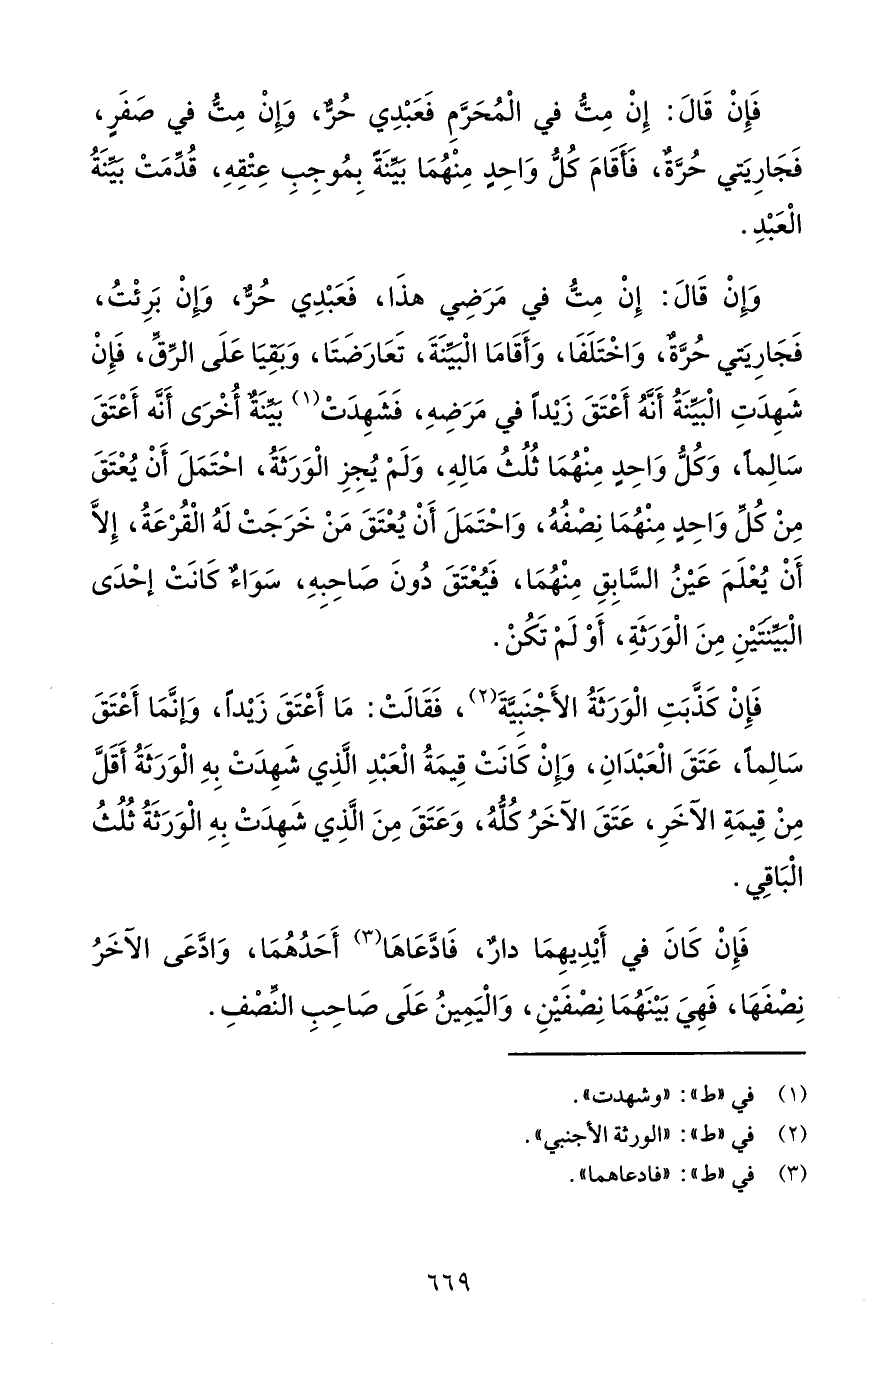 فَإِنْ قَالَ: إِنْ مِتُّ في الْمُحَرَّمِ فَعَبْدِي حُرٌّ، وَإِنْ مِتُّ في صَفَرٍ،
فَجَارِيَتي حُرَّةٌ، فَأَقَامَ كُلُّ وَاحِدٍ مِنْهُمَا بَيِّنَةً بِمُوجِبِ عِتْقِهِ، قُدِّمَتْ بَيِّنَةُ
الْعَبْدِ.
وَإِنْ قَالَ: إِنْ مِتُّ في مَرَضِي هذَا، فَعَبْدِي حُرٌّ، وَإِنْ بَرِئْتُ،
فَجَارِيَتي حُرَّةٌ، وَاخْتَلَفَا، وَأَقَامَا الْبَيِّنَةَ، تَعَارَضَتَا، وَبَقِيَا عَلَى الرِّقِّ، فَإِنْ
شَهِدَتِ الْبَيِّنَةُ أَنَّهُ أَعْتَقَ زَيْداً في مَرَضِهِ، فَشَهِدَتْ(١) بَيِّنَةٌ أُخْرَى أَنَّه أَعْتَقَ
سَالِماً، وَكُلُّ وَاحِدٍ مِنْهُمَا ثُلُثُ مَالِهِ، وَلَمْ يُجِزِ الْوَرَثَةُ، احْتَمَلَ أَنْ يُعْتَقَ
مِنْ كُلِّ وَاحِدٍ مِنْهُمَا نِصْفُهُ، وَاحْتَمَلَ أَنْ يُعْتَقَ مَنْ خَرَجَتْ لَهُ الْقُرْعَةُ، إِلاَّ
أَنْ يُعْلَمَ عَيْنُ السَّابِقِ مِنْهُمَا، فَيُعْتَقَ دُونَ صَاحِبِهِ، سَوَاءٌ كَانَتْ إحْدَى
الْبَيِّنَتَيْنِ مِنَ الْوَرَثَةِ، أَوْ لَمْ تَكُنْ.
فَإِنْ كَذَّبَتِ الْوَرَثَةُ الأَجْنَبِيَّةَ(٢)، فَقَالَتْ: مَا أَعْتَقَ زَيْداً، وَإنَّمَا أَعْتَقَ
سَالِماً، عَتَقَ الْعَبْدَانِ، وَإِنْ كَانَتْ قِيمَةُ الْعَبْدِ الَّذِي شَهِدَتْ بِهِ الْوَرَثَةُ أَقَلَّ
مِنْ قِيمَةِ الآخَرِ، عَتَقَ الآخَرُ كُلُّهُ، وَعَتَقَ مِنَ الَّذِي شَهِدَتْ بِهِ الْوَرَثَةُ ثُلُثُ
الْبَاقِي.
فَإِنْ كَانَ في أَيْدِيهِمَا دارٌ، فَادَّعَاهَا(٣) أَحَدُهُمَا، وَادَّعَى الآخَرُ
نِصْفَهَا، فَهِيَ بَيْنَهُمَا نِصْفَيْنِ، وَالْيَمِينُ عَلَى صَاحِبِ النِّصْفِ.
(١) في «ط»: «وشهدت».
(٢) في «ط»: «الورثة الأجنبي».
(٣) في «ط»: «فادعاهما».
٦٦٩